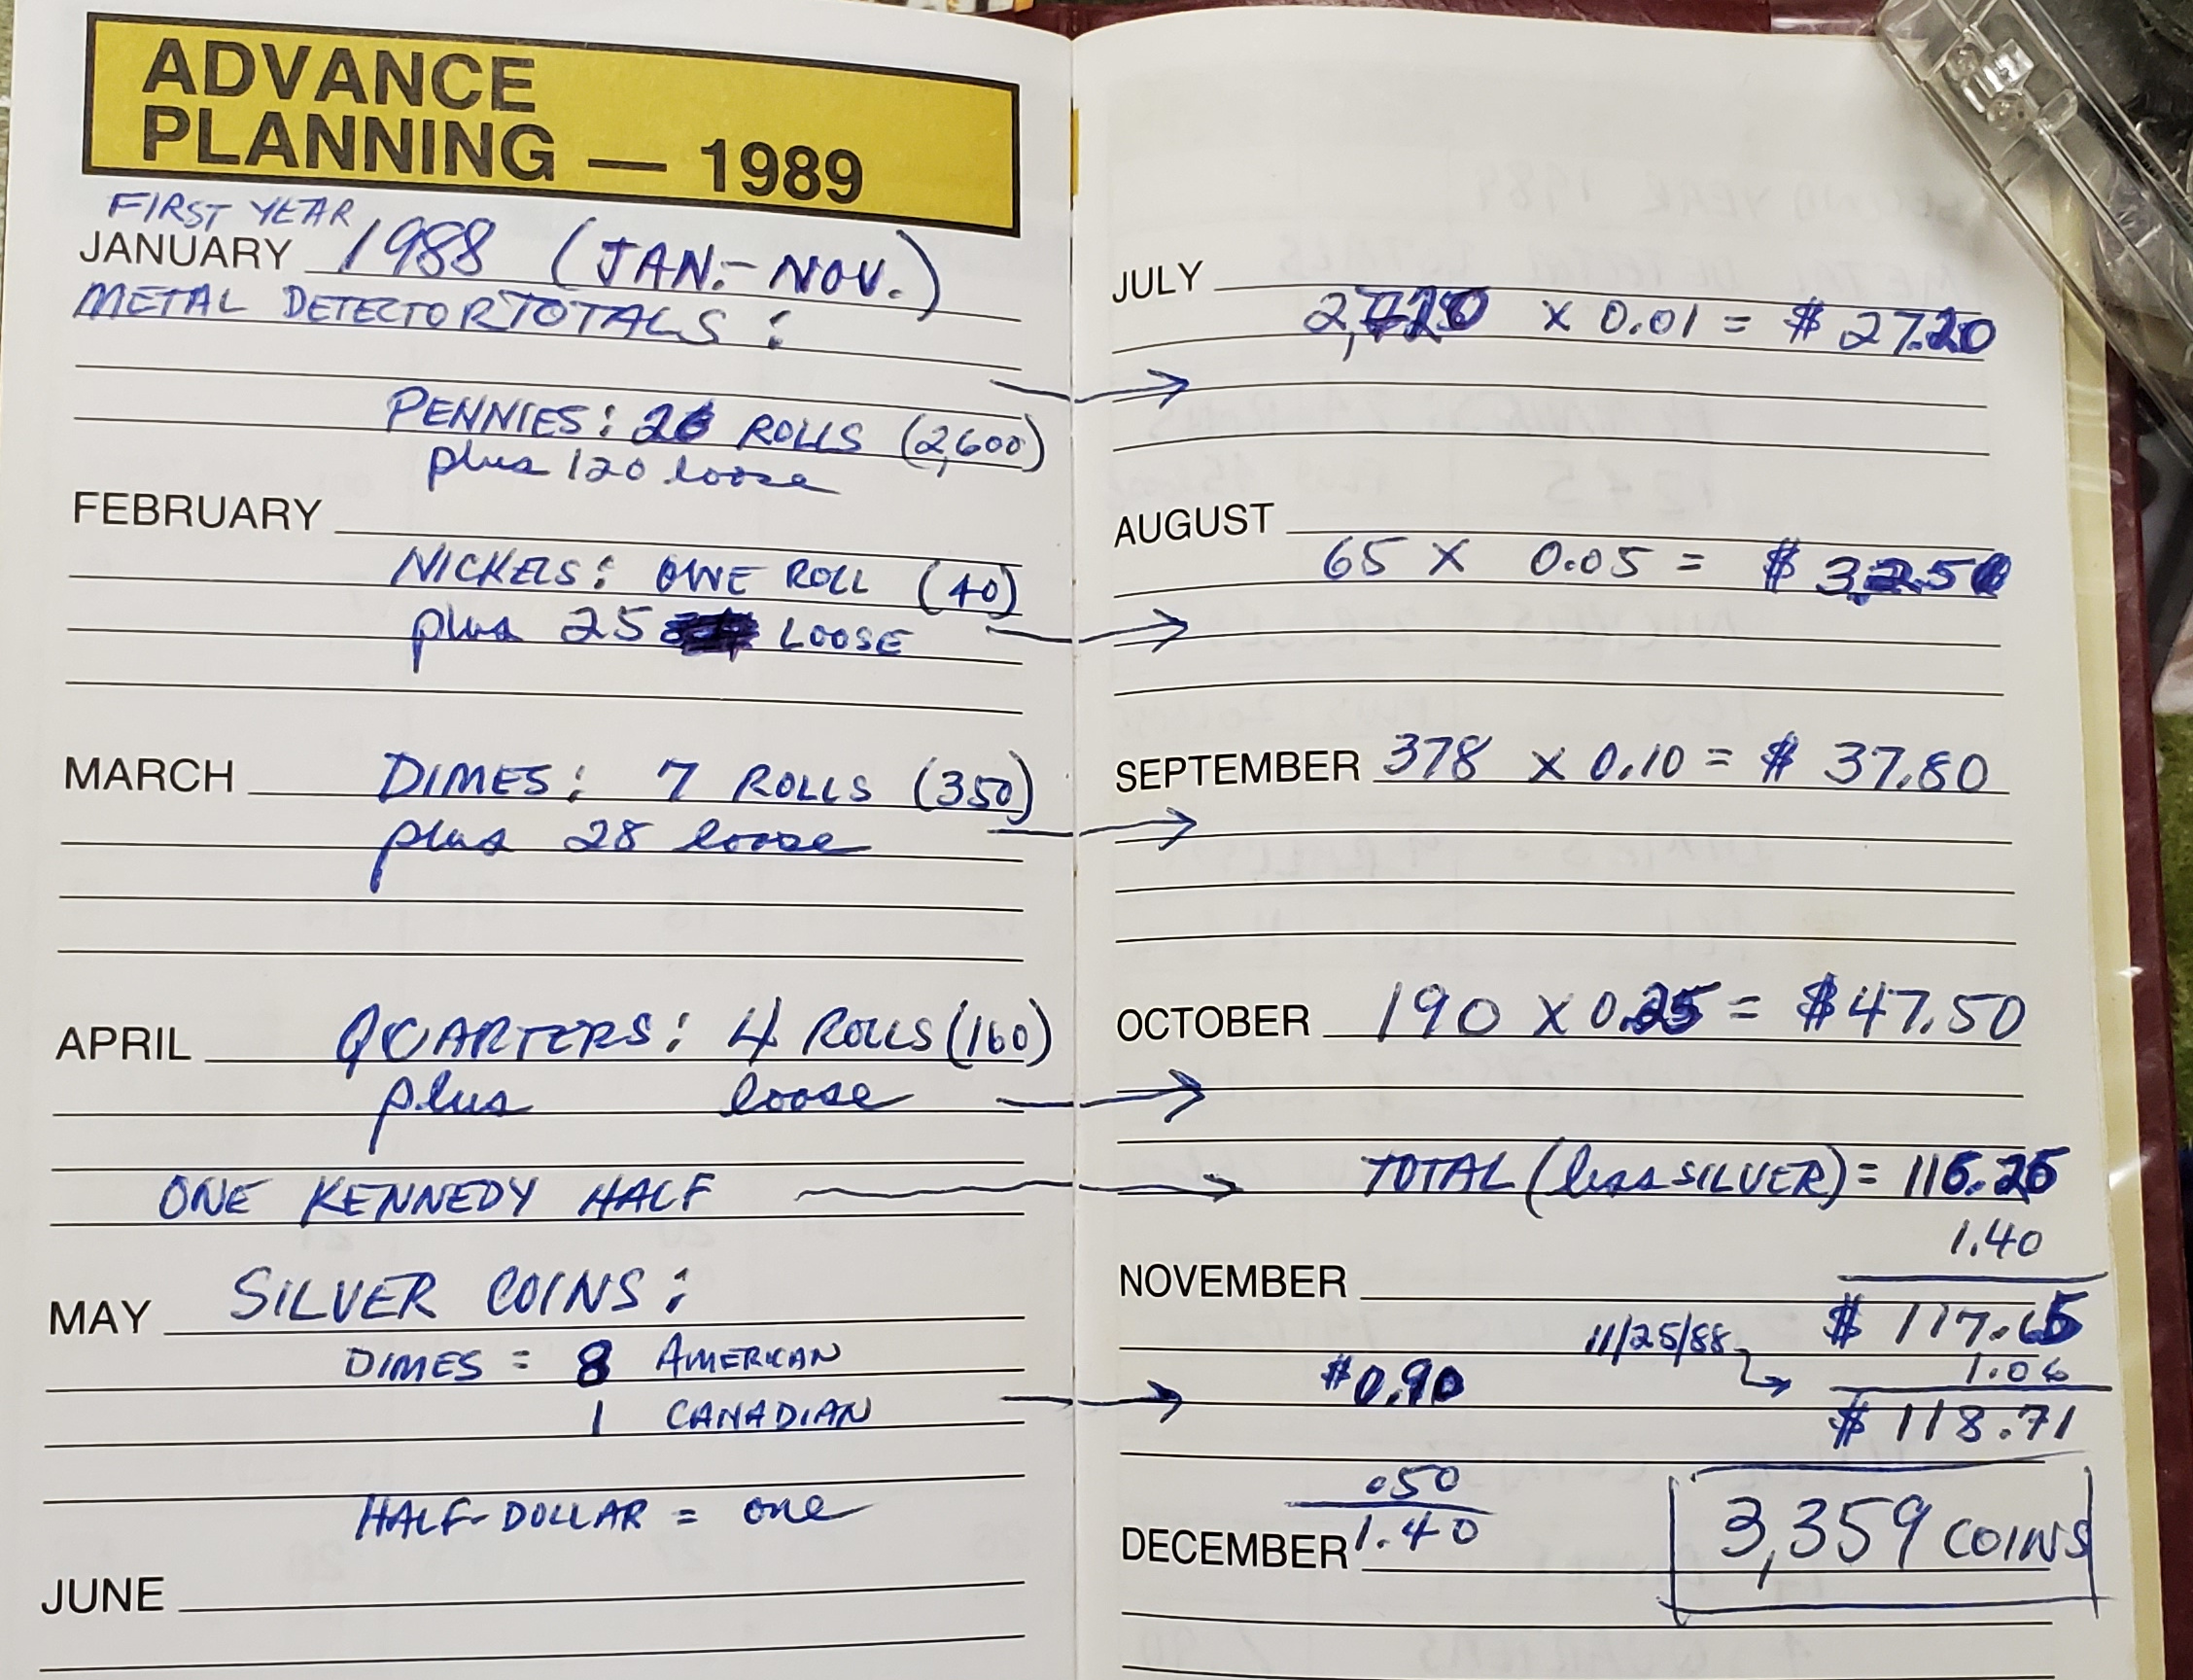 ADVANCE
PLANNING — 1989
FIRST YEAR
JANUARY 1988 (JAN.- NOV.)
METAL DETECTOR TOTALS :
PENNIES: 26 ROLLS (2,600)
plus 120 loose
FEBRUARY
NICKELS: ONE ROLL (40)
plus 25 LOOSE
MARCH DIMES: 7 ROLLS (350)
plus 28 loose
APRIL QUARTERS: 4 ROLLS (160)
plus loose
ONE KENNEDY HALF
MAY SILVER COINS:
DIMES = 8 AMERICAN
1 CANADIAN
HALF-DOLLAR = one
JUNE
JULY
2,720 x 0.01 = $ 27.20
AUGUST
65 x 0.05 = $ 3.25
SEPTEMBER 378 x 0.10 = $ 37.80
OCTOBER 190 x 0.25 = $47.50
TOTAL (less SILVER) = 116.25
1.40
NOVEMBER
$ 117.65
11/25/88
1.06
$0.90
$ 118.71
.50
1.40
DECEMBER
3,359 COINS